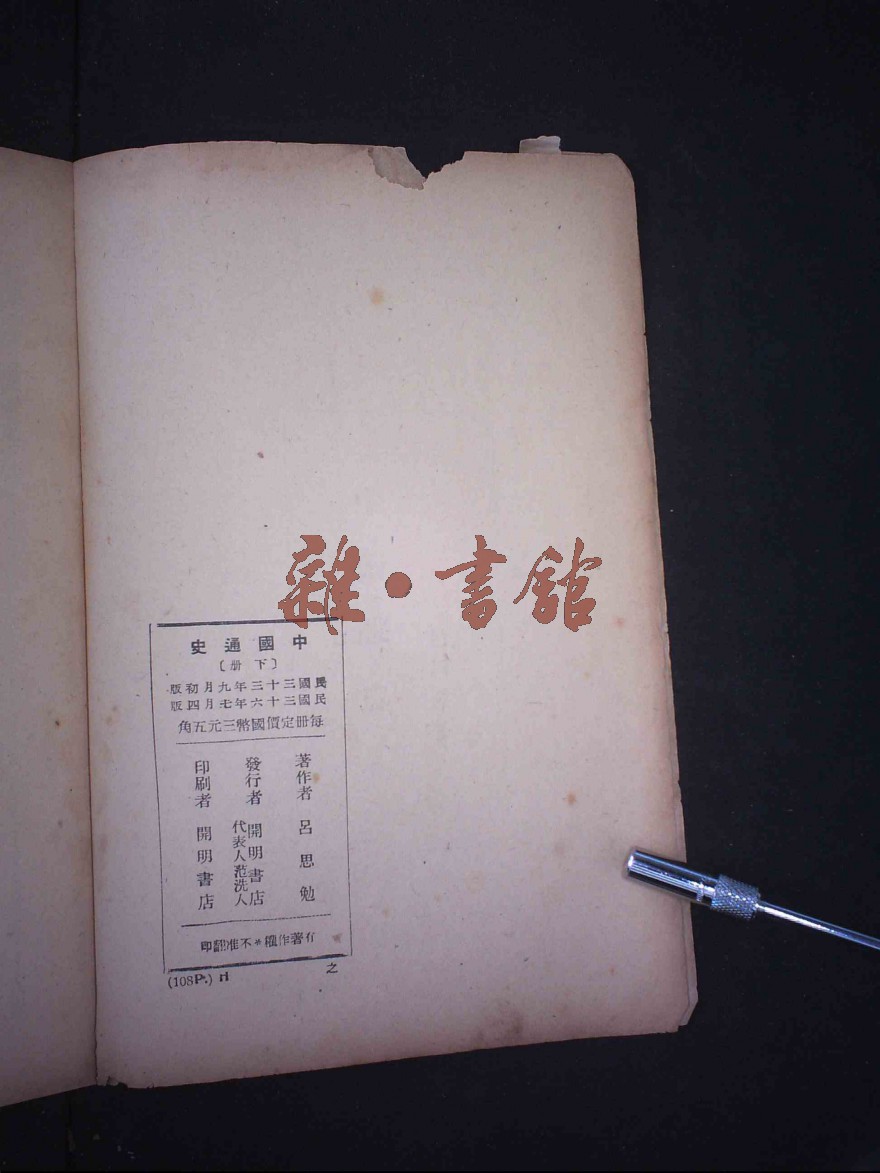 雜·書館
中國通史
〔下冊〕
民國三十三年九月初版
民國三十六年七月四版
每冊定價國幣三元五角
著作者 呂思勉
發行者 開明書店
代表人范洗人
印刷者 開明書店
有著作權*不准翻印
(108P.) H
之